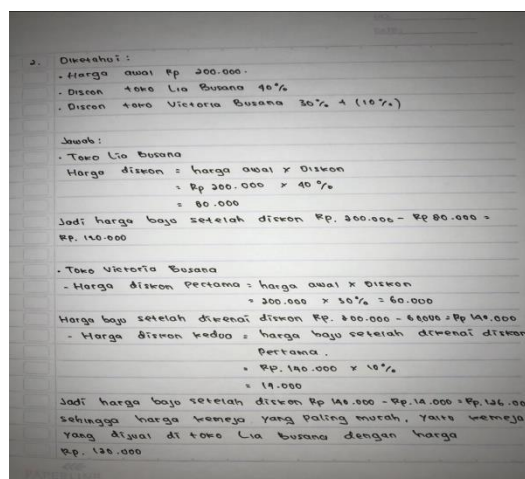 2. Diketahui :
- Harga awal Rp 200.000.
- Diskon toko Lia Busana 40%
- Diskon toko Victoria Busana 30% + (10%)
Jawab :
- Toko Lia Busana
Harga diskon = harga awal x Diskon
= Rp 200.000 x 40%
= 80.000
Jadi harga baju setelah diskon Rp. 200.000 - Rp 80.000 =
Rp. 120.000
- Toko Victoria Busana
- Harga diskon Pertama = harga awal x Diskon
= 200.000 x 30% = 60.000
Harga baju setelah dikenai diskon Rp. 200.000 - 60000 = Rp 140.000
- Harga diskon kedua = harga baju setelah dikenai diskon
Pertama.
= Rp. 140.000 x 10%
= 14.000
Jadi harga baju setelah diskon Rp 140.000 - Rp. 14.000 = Rp. 126.00
sehingga harga kemeja yang paling murah, yaitu kemeja
yang dijual di toko Lia busana dengan harga
Rp. 120.000